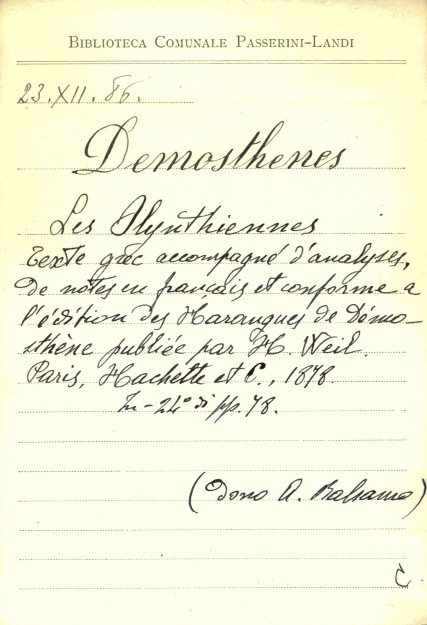 BIBLIOTECA COMUNALE PASSERINI-LANDI
23.XII.86.
Demosthenes
Les Olynthiennes
Texte grec accompagné d'analyses,
de notes en français et conforme a
l'édition des Harangues de Démo-
sthène publiée par H. Weil.
Paris, Hachette et C., 1878.
In-24° di pp. 78.
(Dono A. Balsamo)
C.